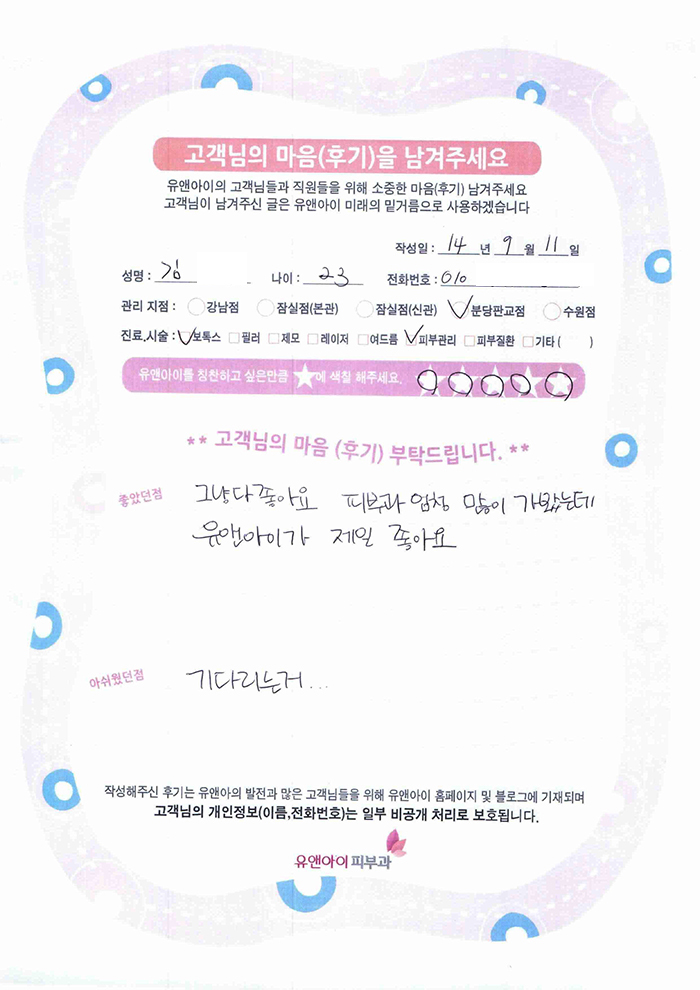 고객님의 마음(후기)을 남겨주세요
유앤아이의 고객님들과 직원들을 위해 소중한 마음(후기) 남겨주세요
고객님이 남겨주신 글은 유앤아이 미래의 밑거름으로 사용하겠습니다
작성일 : 14 년 9 월 11 일
성명 : 김 나이 : 23 전화번호 : 010
관리 지점 : 강남점 잠실점(본관) 잠실점(신관) 분당판교점 수원점
진료,시술 : 보톡스 필러 제모 레이저 여드름 피부관리 피부질환 기타 ( )
유앤아이를 칭찬하고 싶은만큼 ★에 색칠 해주세요.
** 고객님의 마음 (후기) 부탁드립니다. **
좋았던점 그냥다좋아요 피부과 엄청 많이 가봤는데
유앤아이가 제일 좋아요
아쉬웠던점 기다리는거...
작성해주신 후기는 유앤아의 발전과 많은 고객님들을 위해 유앤아이 홈페이지 및 블로그에 기재되며
고객님의 개인정보(이름,전화번호)는 일부 비공개 처리로 보호됩니다.
유앤아이피부과